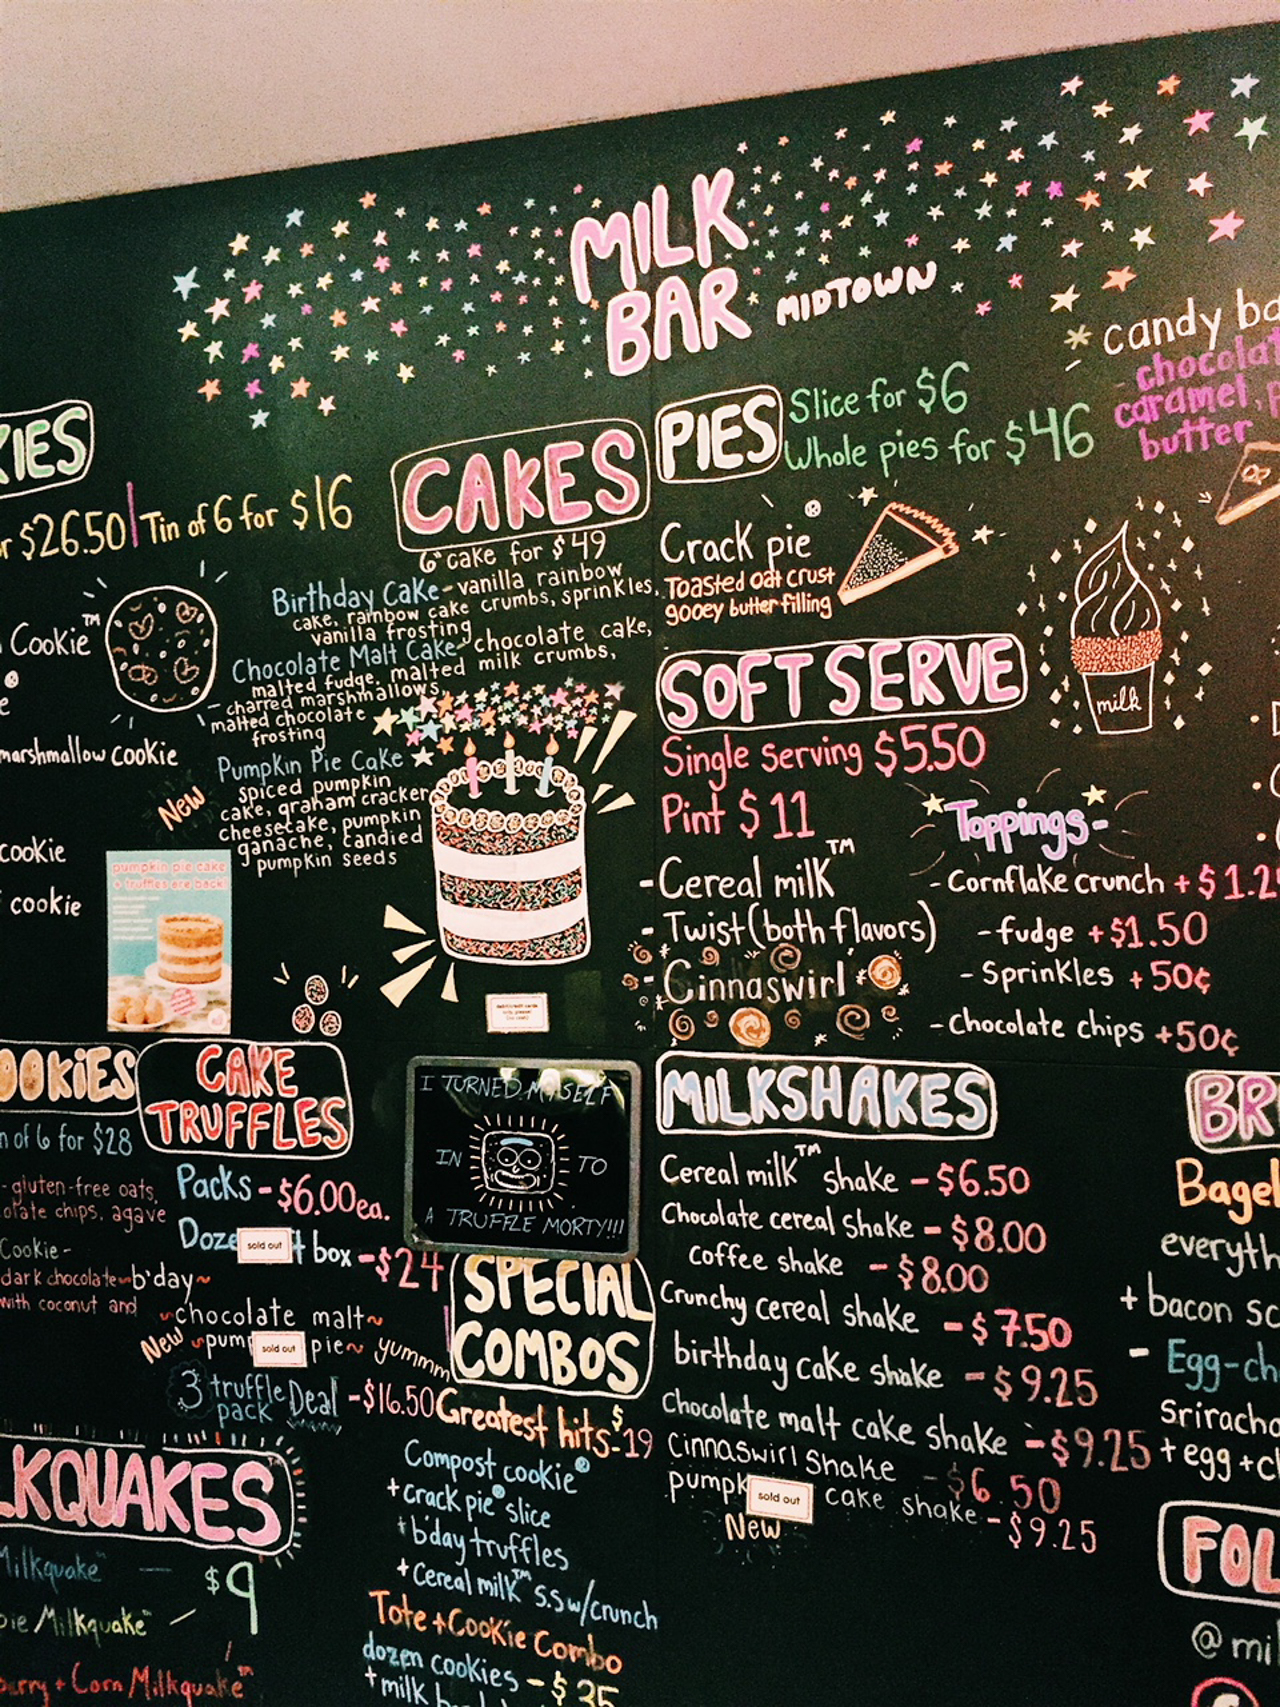 MILK
BAR MIDTOWN
KIES
$26.50 | Tin of 6 for $16
Cookie™
®
marshmallow cookie
cookie
cookie
CAKES
6" cake for $49
Birthday Cake - vanilla rainbow
cake, rainbow cake crumbs, sprinkles,
vanilla frosting
Chocolate Malt Cake - chocolate cake,
malted fudge, malted milk crumbs,
charred marshmallows,
malted chocolate
frosting
Pumpkin Pie Cake
New
spiced pumpkin
cake, graham cracker
cheesecake, pumpkin
ganache, candied
pumpkin seeds
pumpkin pie cake
+ truffles are back!
PIES
Slice for $6
Whole pies for $46
Crack pie®
Toasted oat crust
gooey butter filling
candy ba
chocolat
caramel, p
butter
SOFT SERVE
Single serving $5.50
Pint $11
- Cereal milk™
- Twist (both flavors)
- Cinnaswirl
milk
Toppings-
- Cornflake crunch + $1.2
- fudge + $1.50
- Sprinkles + 50¢
- Chocolate chips + 50¢
OOKIES
n of 6 for $28
- gluten-free oats,
olate chips, agave
Cookie -
dark chocolate
with coconut and
CAKE
TRUFFLES
Packs - $6.00ea.
Doze sold out t box - $24
~b'day~
~chocolate malt~
New ~pum sold out pie~ yummm
3 truffle
pack Deal - $16.50
I TURNED MYSELF
IN TO
A TRUFFLE MORTY!!!
SPECIAL
COMBOS
Greatest hits - $19
Compost cookie®
+ crack pie® slice
+ b'day truffles
+ Cereal milk™ s.s w/crunch
Tote + Cookie Combo
dozen cookies - $35
+ milk
MILKSHAKES
Cereal milk™ shake - $6.50
Chocolate cereal shake - $8.00
coffee shake - $8.00
Crunchy cereal shake - $7.50
birthday cake shake - $9.25
Chocolate malt cake shake - $9.25
Cinnaswirl shake - $6.50
pumpk sold out cake shake - $9.25
New
LKQUAKES
Milkquake™ — $9
pie Milkquake™
erry + Corn Milkquake™
BR
Bagel
everyth
+ bacon sc
- Egg-ch
sriracha
+ egg + c
FOL
@mil